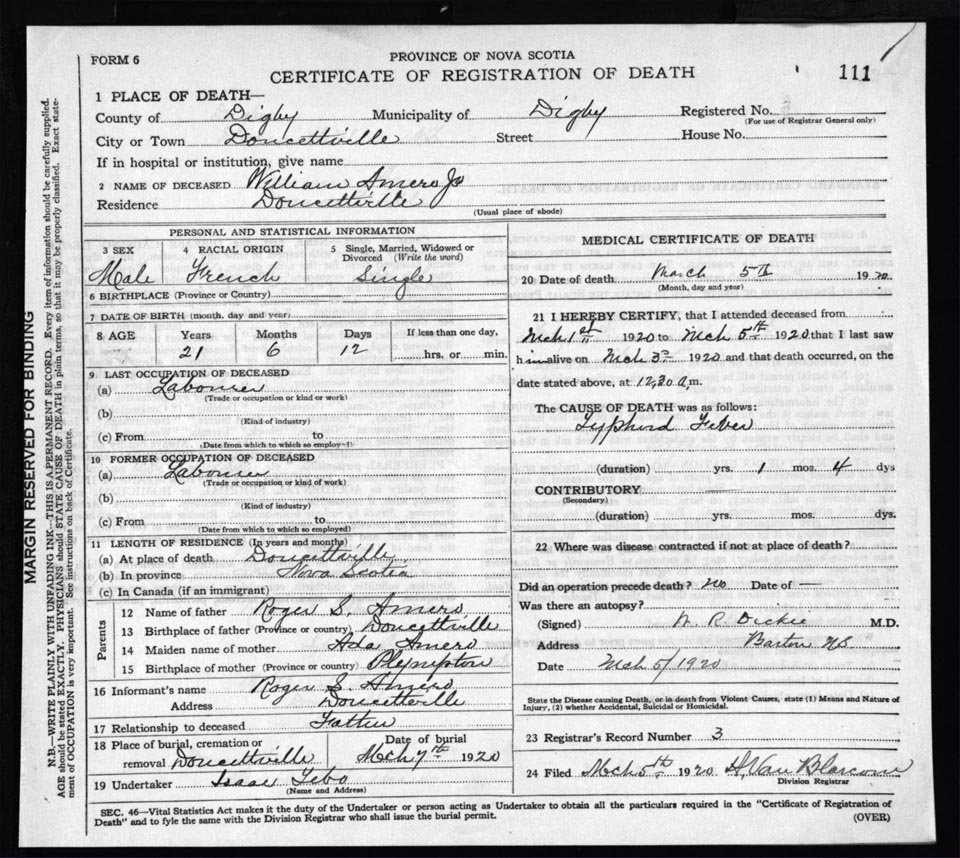 FORM 6
PROVINCE OF NOVA SCOTIA
CERTIFICATE OF REGISTRATION OF DEATH
111
1 PLACE OF DEATH—
County of Digby Municipality of Digby Registered No.
(For use of Registrar General only)
City or Town Doucettville Street House No.
If in hospital or institution, give name
2 NAME OF DECEASED William Amero Jr
Residence Doucettville
(Usual place of abode)
PERSONAL AND STATISTICAL INFORMATION
3 SEX 4 RACIAL ORIGIN 5 Single, Married, Widowed or Divorced (Write the word)
Male French Single
6 BIRTHPLACE (Province or Country)
7 DATE OF BIRTH (month, day and year)
8 AGE Years Months Days If less than one day,
21 6 12 hrs. or min.
9 LAST OCCUPATION OF DECEASED
(a) Labourer
(Trade or occupation or kind or work)
(b)
(Kind of industry)
(c) From to
(Date from which to which so employed)
10 FORMER OCCUPATION OF DECEASED
(a) Labourer
(Trade or occupation or kind of work)
(b)
(Kind of industry)
(c) From to
(Date from which to which so employed)
11 LENGTH OF RESIDENCE (In years and months)
(a) At place of death Doucettville
(b) In province Nova Scotia
(c) In Canada (if an immigrant)
Parents
12 Name of father Roger S. Amero
13 Birthplace of father (Province or country) Doucettville
14 Maiden name of mother Ada Amero
15 Birthplace of mother (Province or country) Plympton
16 Informant's name Roger S. Amero
Address Doucettville
17 Relationship to deceased Father
18 Place of burial, cremation or removal Doucettville Date of burial Mch 7th 1920
19 Undertaker Isaac Tebo
(Name and Address)
MEDICAL CERTIFICATE OF DEATH
20 Date of death March 5th 1920
(Month, day and year)
21 I HEREBY CERTIFY, that I attended deceased from
Mch 1st 1920 to Mch 5th 1920 that I last saw
him alive on Mch 3rd 1920 and that death occurred, on the
date stated above, at 12.30 a.m.
The CAUSE OF DEATH was as follows:
Typhoid Fever
(duration) yrs. 1 mos. 4 dys
CONTRIBUTORY —
(Secondary)
(duration) yrs. mos. dys.
22 Where was disease contracted if not at place of death?
Did an operation precede death? no Date of —
Was there an autopsy?
(Signed) R. Dickie M.D.
Address Barton NS
Date Mch 5/1920
State the Disease causing Death, or in death from Violent Causes, state (1) Means and Nature of
Injury, (2) whether Accidental, Suicidal or Homicidal.
23 Registrar's Record Number 3
24 Filed Mch 5th 1920 H Van Blarcom
Division Registrar
SEC. 46—Vital Statistics Act makes it the duty of the Undertaker or person acting as Undertaker to obtain all the particulars required in the "Certificate of Registration of
Death" and to fyle the same with the Division Registrar who shall issue the burial permit.
(OVER)
MARGIN RESERVED FOR BINDING
N.B.—WRITE PLAINLY WITH UNFADING INK—THIS IS A PERMANENT RECORD. Every item of information should be carefully supplied.
AGE should be stated EXACTLY. PHYSICIANS should STATE CAUSE OF DEATH in plain terms, so that it may be properly classified. Exact state-
ment of OCCUPATION is very important. See instructions on back of Certificate.